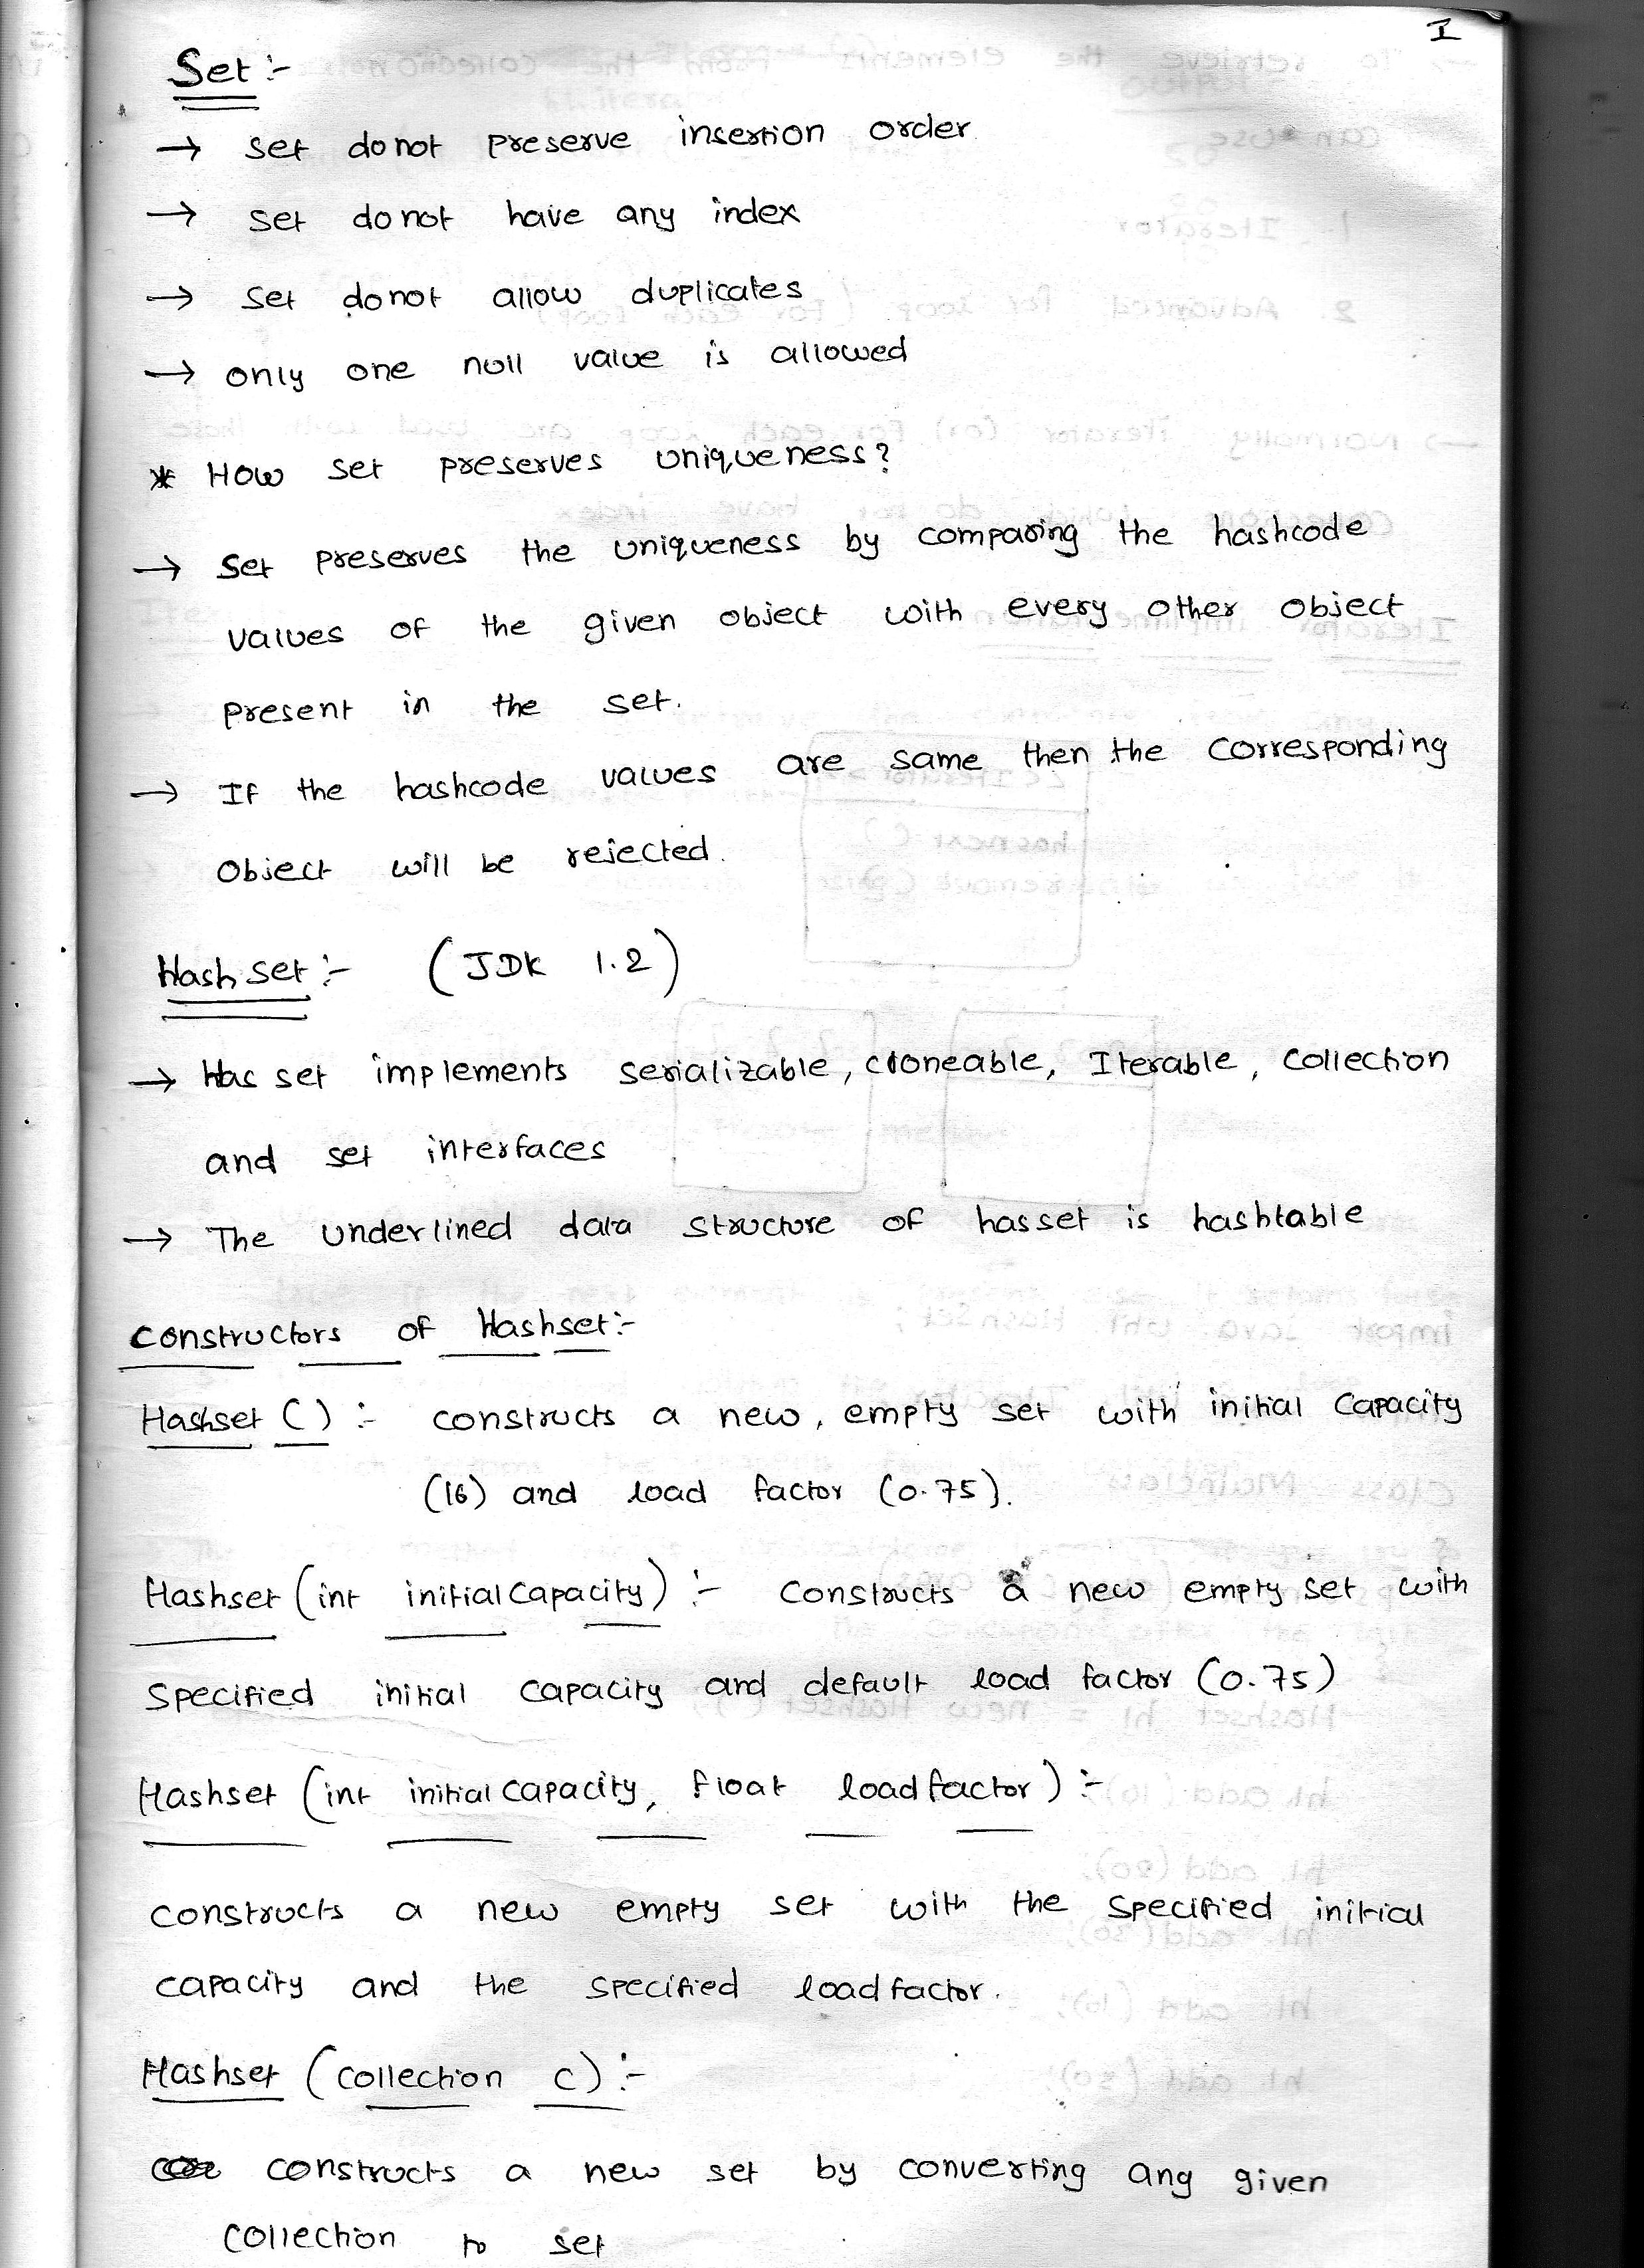 I
Set :-
→ Set do not preserve insertion order
→ Set do not have any index
→ Set do not allow duplicates
→ only one null value is allowed
* How set preserves uniqueness?
→ Set preserves the uniqueness by comparing the hashcode
values of the given object with every other object
present in the set.
→ If the hashcode values are same then the corresponding
Object will be rejected.
Hash set :- (JDK 1.2)
→ Has set implements serializable, cloneable, Iterable, Collection
and set interfaces
→ The underlined data structure of has set is hashtable
Constructors of Hashset :-
Hashset () :- constructs a new, empty set with initial capacity
(16) and load factor (0.75).
Hashset (int initial capacity) :- Constructs a new empty set with
Specified initial capacity and default load factor (0.75)
Hashset (int initial capacity, float load factor) :-
constructs a new empty set with the specified initial
capacity and the specified load factor.
Hashset (collection c) :-
constructs a new set by converting any given
collection to set